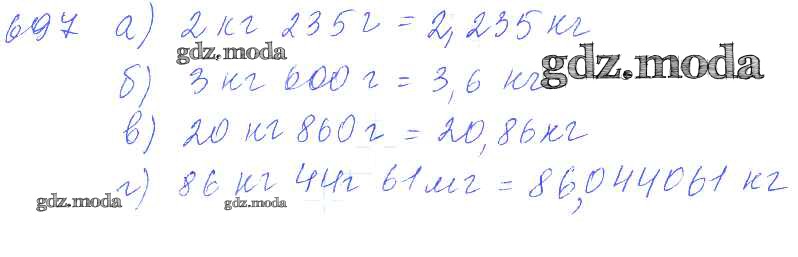 697 а) 2 кг 235 г = 2,235 кг
gdz.moda
gdz.moda
б) 3 кг 600 г = 3,6 кг
в) 20 кг 860 г = 20,86 кг
г) 86 кг 44 г 61 мг = 86,044061 кг
gdz.moda
gdz.moda